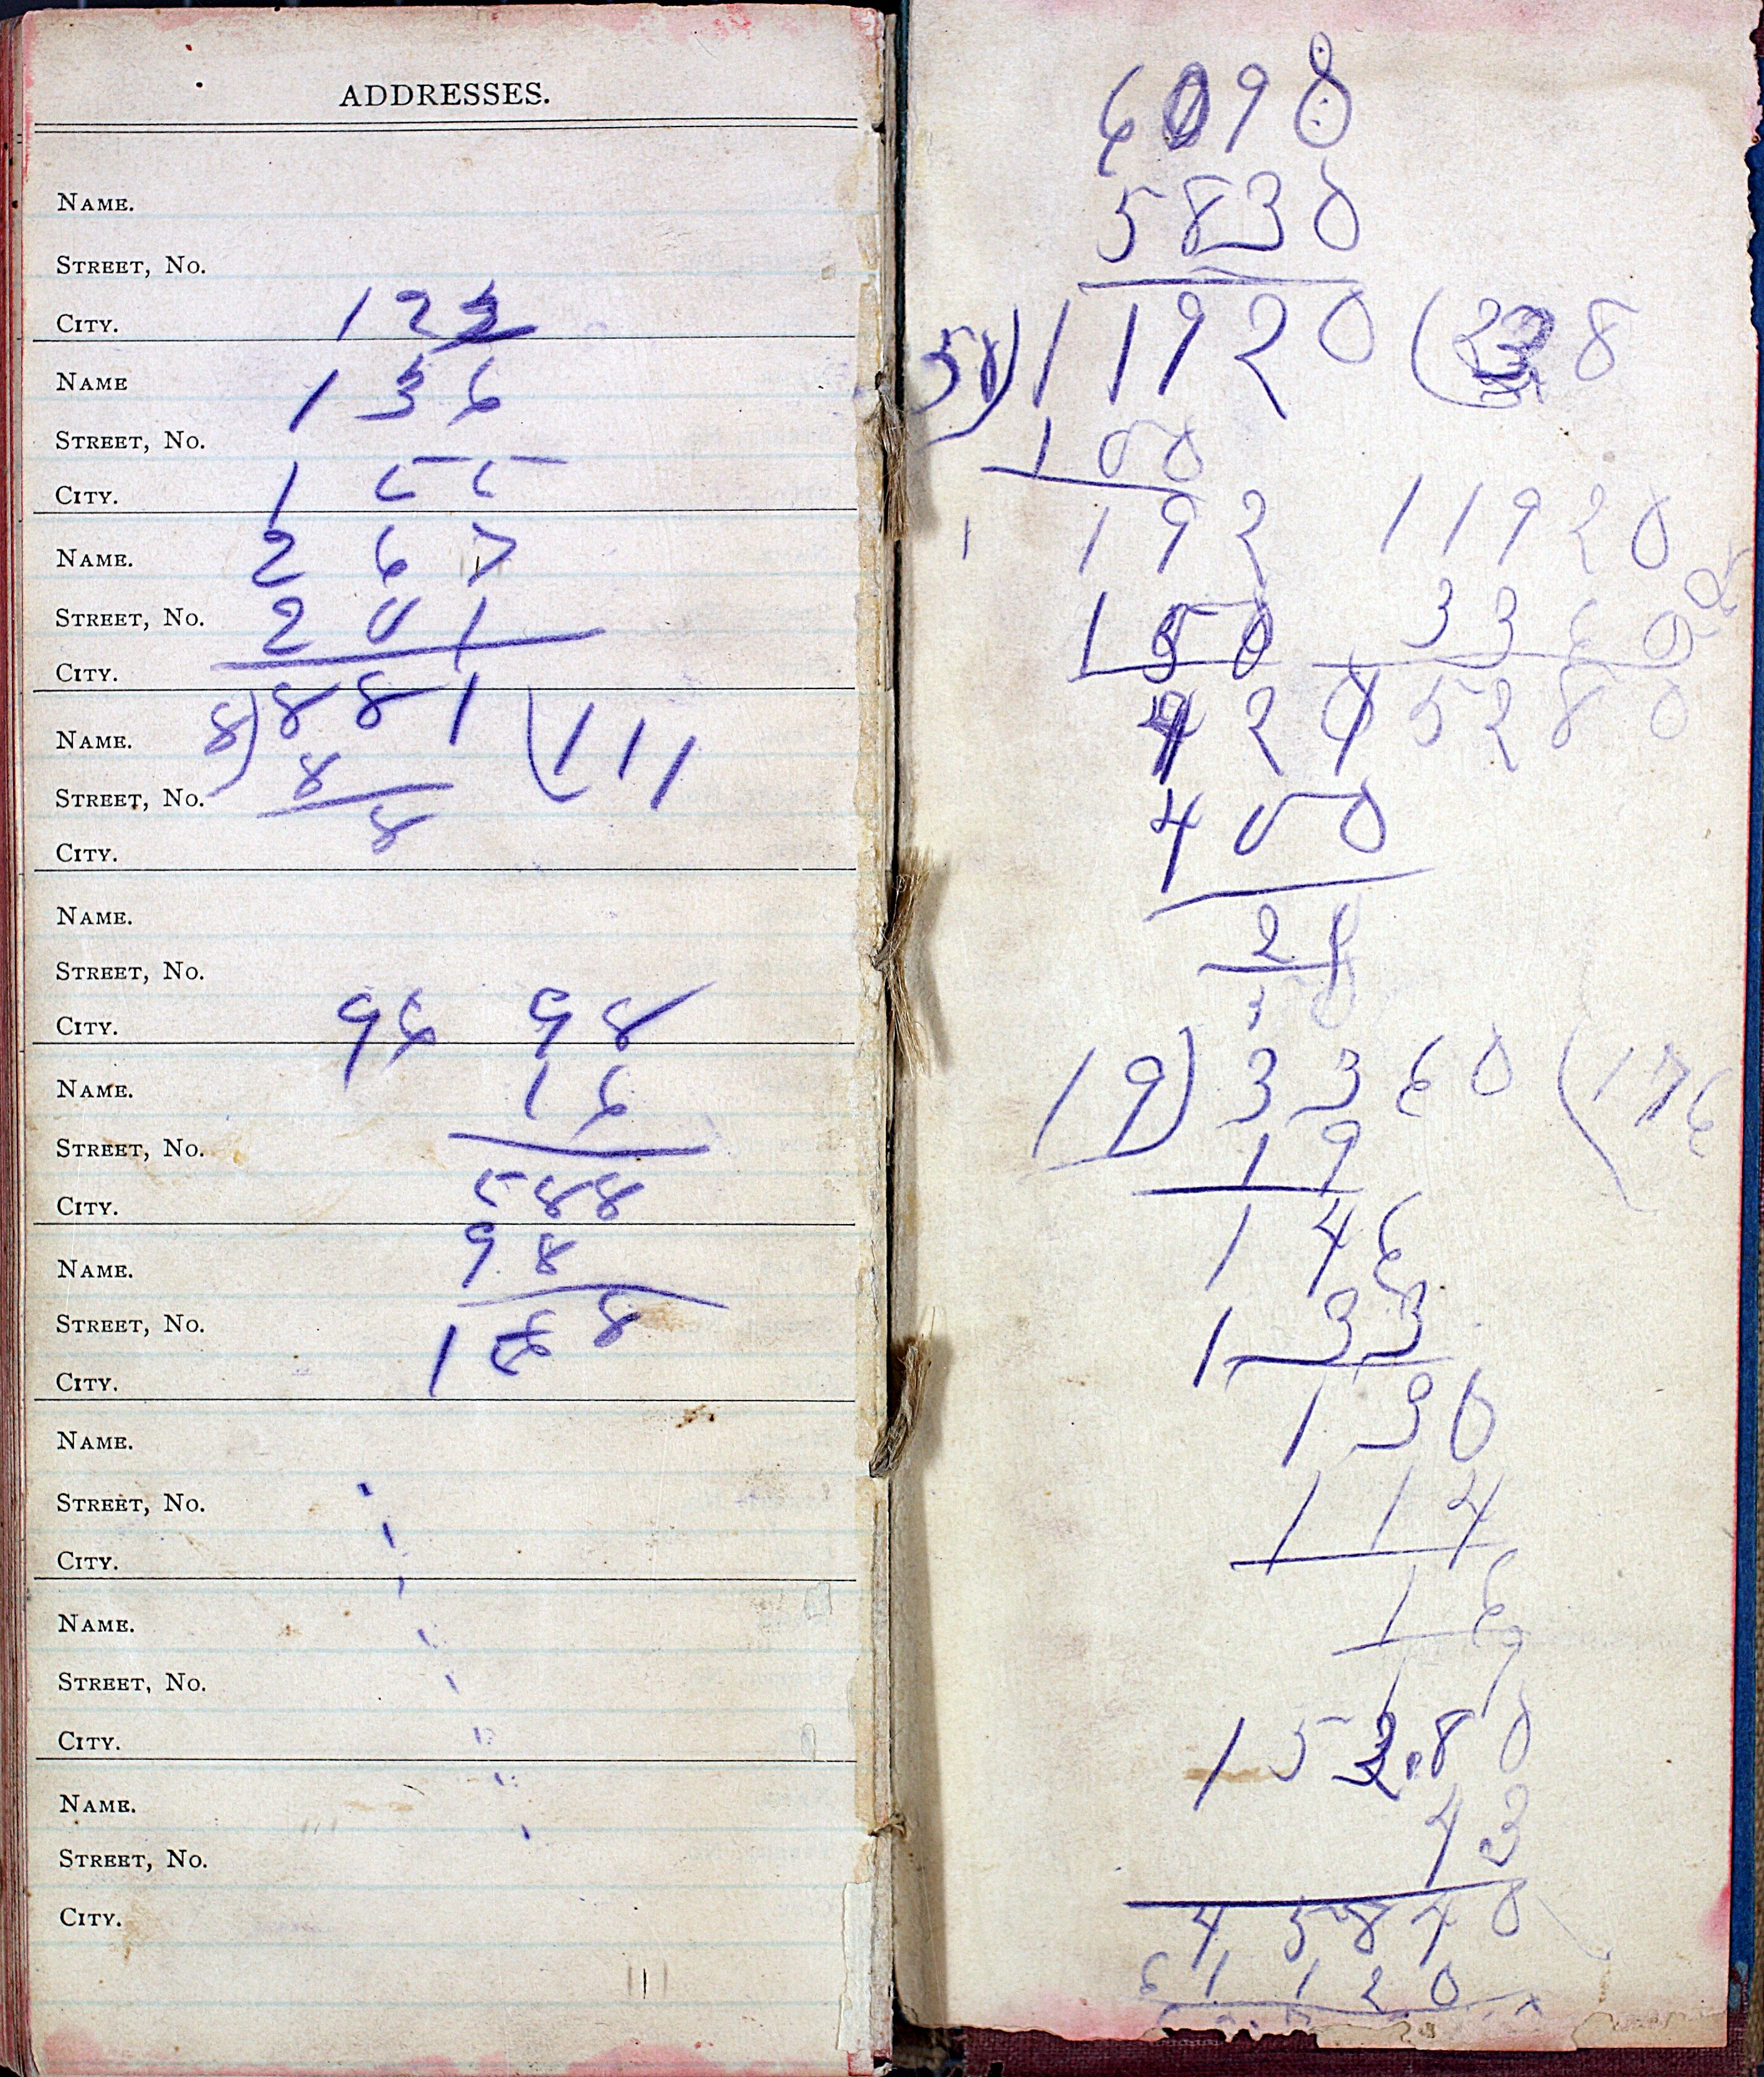 ADDRESSES.
NAME.
STREET, No.
CITY. 122
NAME 136
STREET, No.
CITY. 155
NAME. 267
STREET, No. 201
CITY.
NAME. 8)881(111
STREET, No. 8
CITY. 8
NAME.
STREET, No.
CITY. 96 98
NAME. 16
STREET, No.
CITY. 588
NAME. 98
STREET, No. 1568
CITY.
NAME.
STREET, No.
CITY.
NAME.
STREET, No.
CITY.
NAME.
STREET, No.
CITY.
6098
5830
50)11920(238
100
192 11920
150 3360
420 15280
400
20
19)3360(176
19
146
133
130
114
16
19
152.80
43
45840
61120